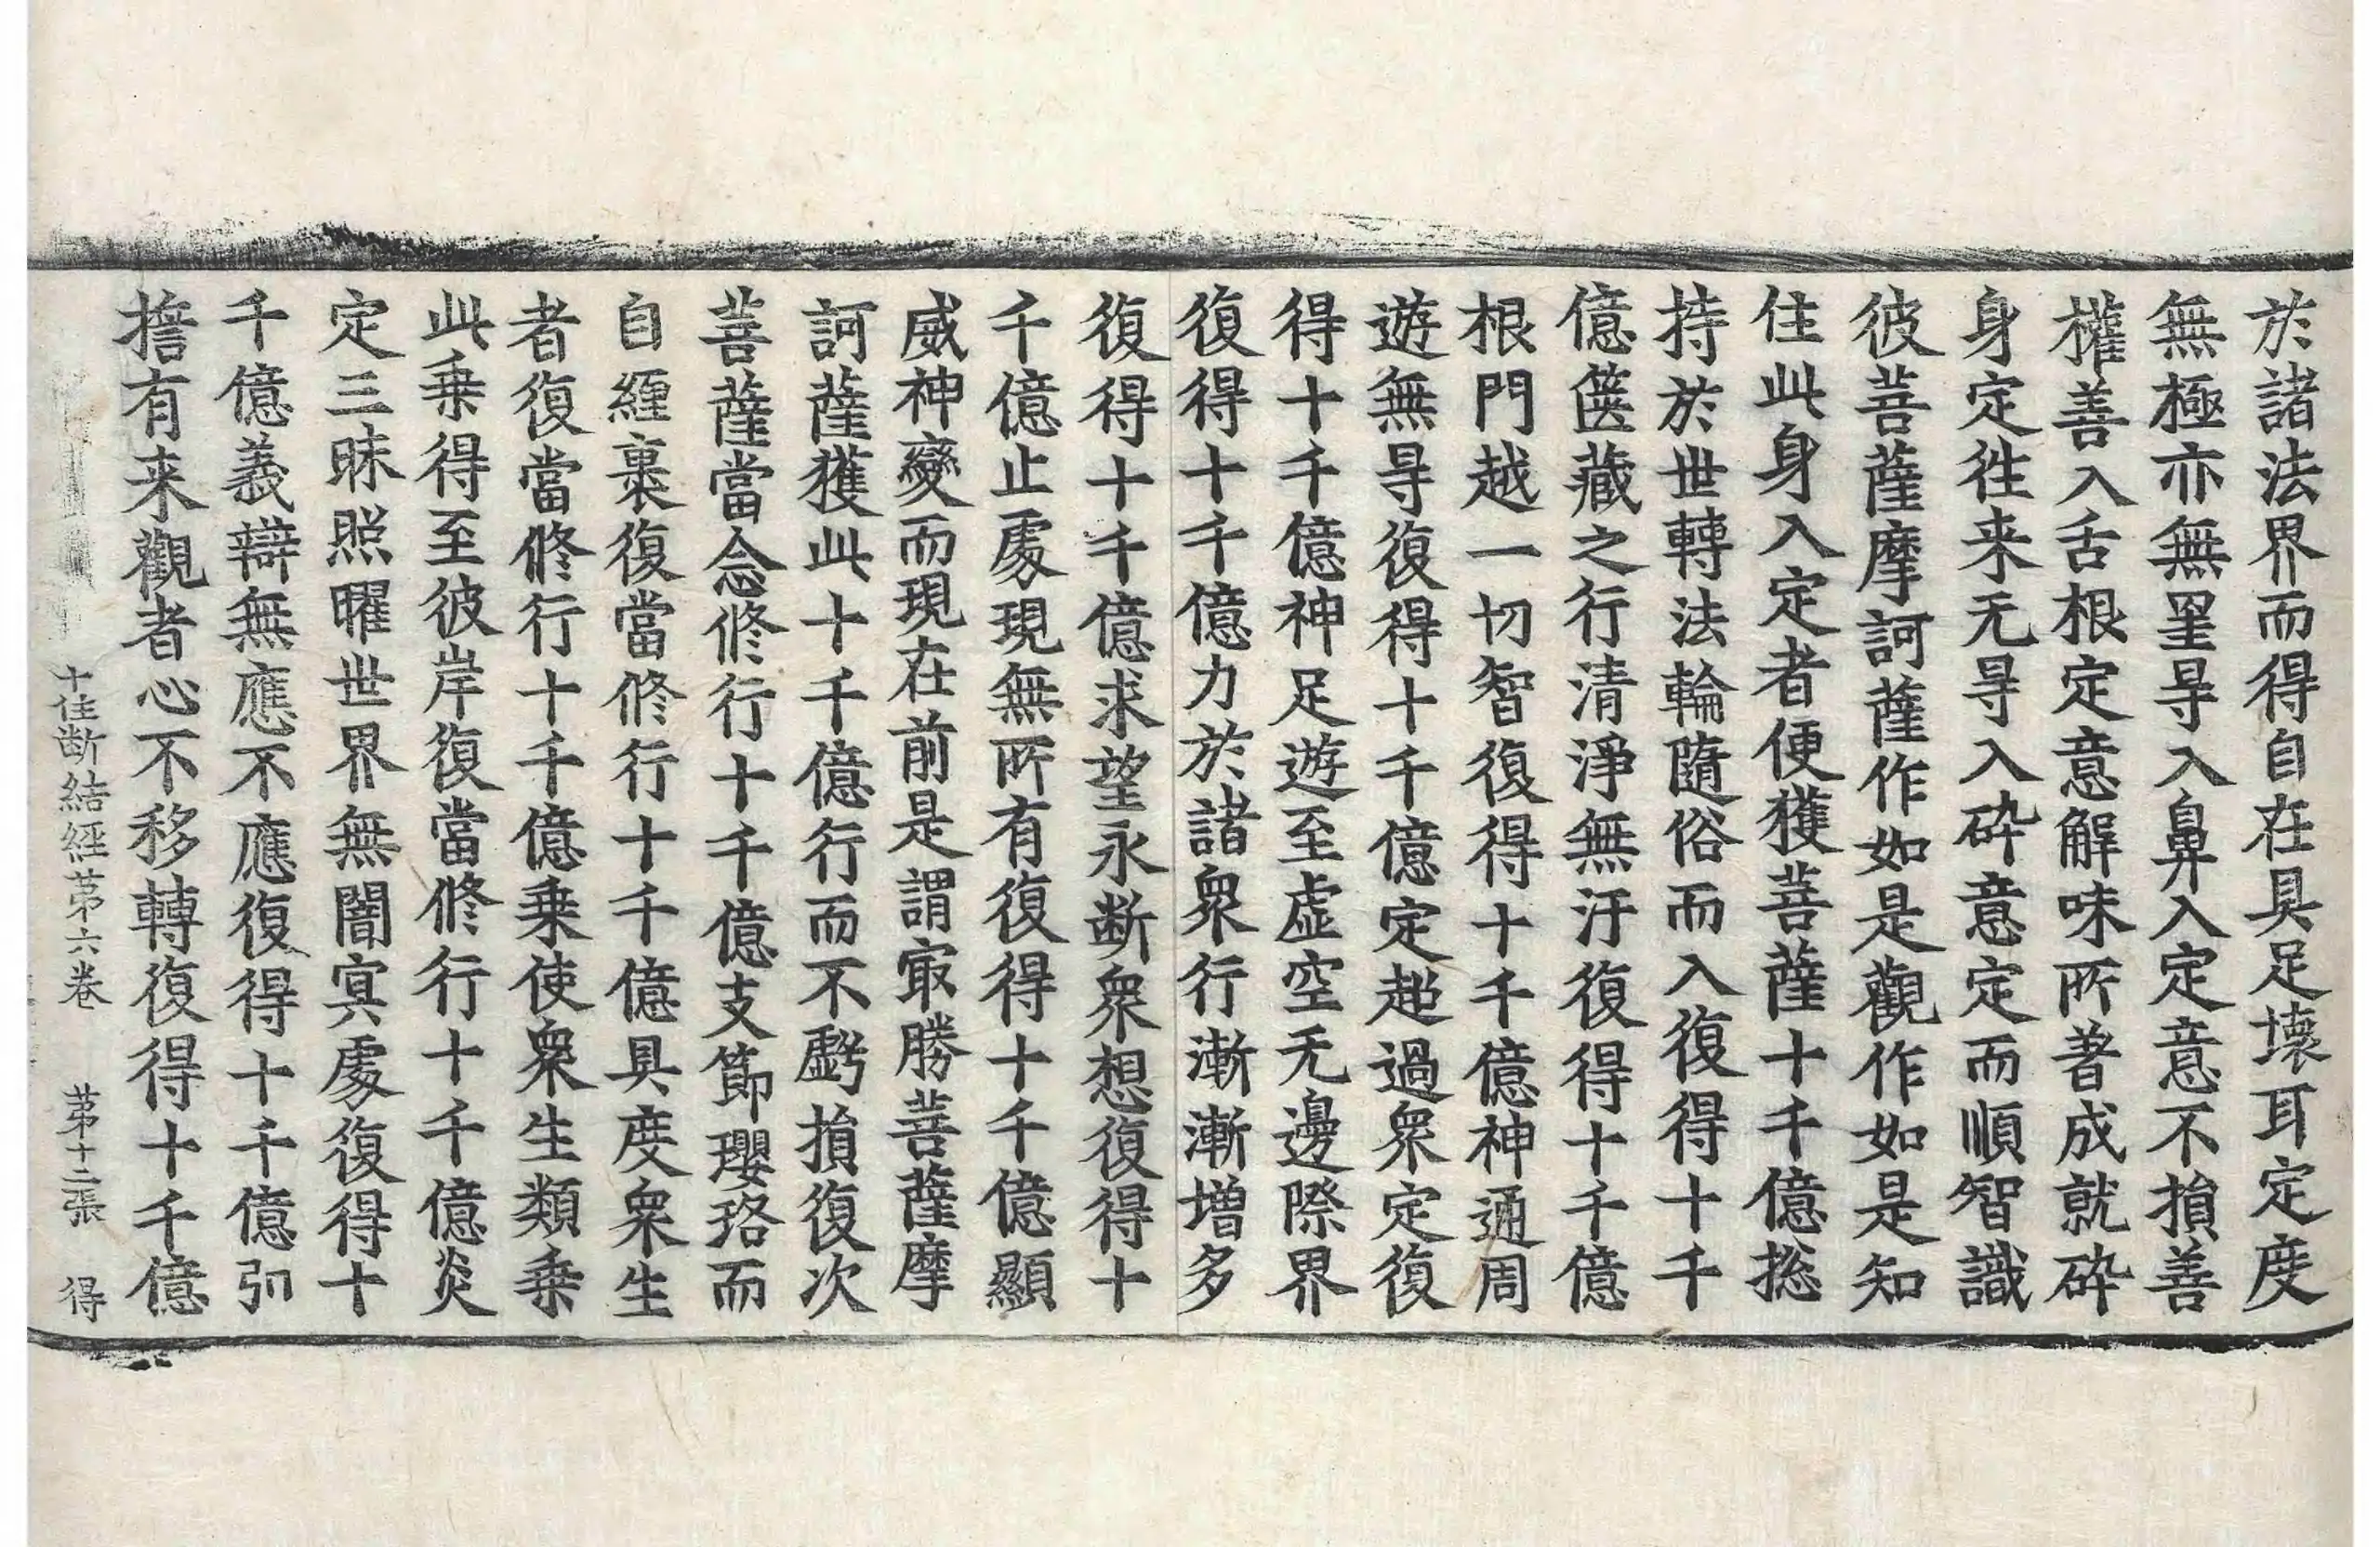 於諸法界而得自在具足壞耳定度
無極亦無罣㝵入鼻入定意不損善
權善入舌根定意解味所著成就碎
身定徃来无㝵入碎意定而順智識
彼菩薩摩訶薩作如是觀作如是知
住此身入定者便獲菩薩十千億捴
持於世轉法輪隨俗而入復得十千
億篋藏之行清淨無汙復得十千億
根門越一切智復得十千億神通周
遊無㝵復得十千億定超過衆定復
得十千億神足遊至虛空无邊際界
復得十千億力於諸衆行漸漸增多
復得十千億求望永断衆想復得十
千億止處現無所有復得十千億顯
威神變而現在前是謂㝡勝菩薩摩
訶薩獲此十千億行而不虧損復次
菩薩當念修行十千億支節瓔珞而
自纏裹復當修行十千億具度衆生
者復當修行十千億乗使衆生類乗
此乗得至彼岸復當修行十千億炎
定三昧照曜世界無闇冥處復得十
千億義辯無應不應復得十千億弘
擔有来觀者心不移轉復得十千億
十住断結經苐六卷 苐十二張 得